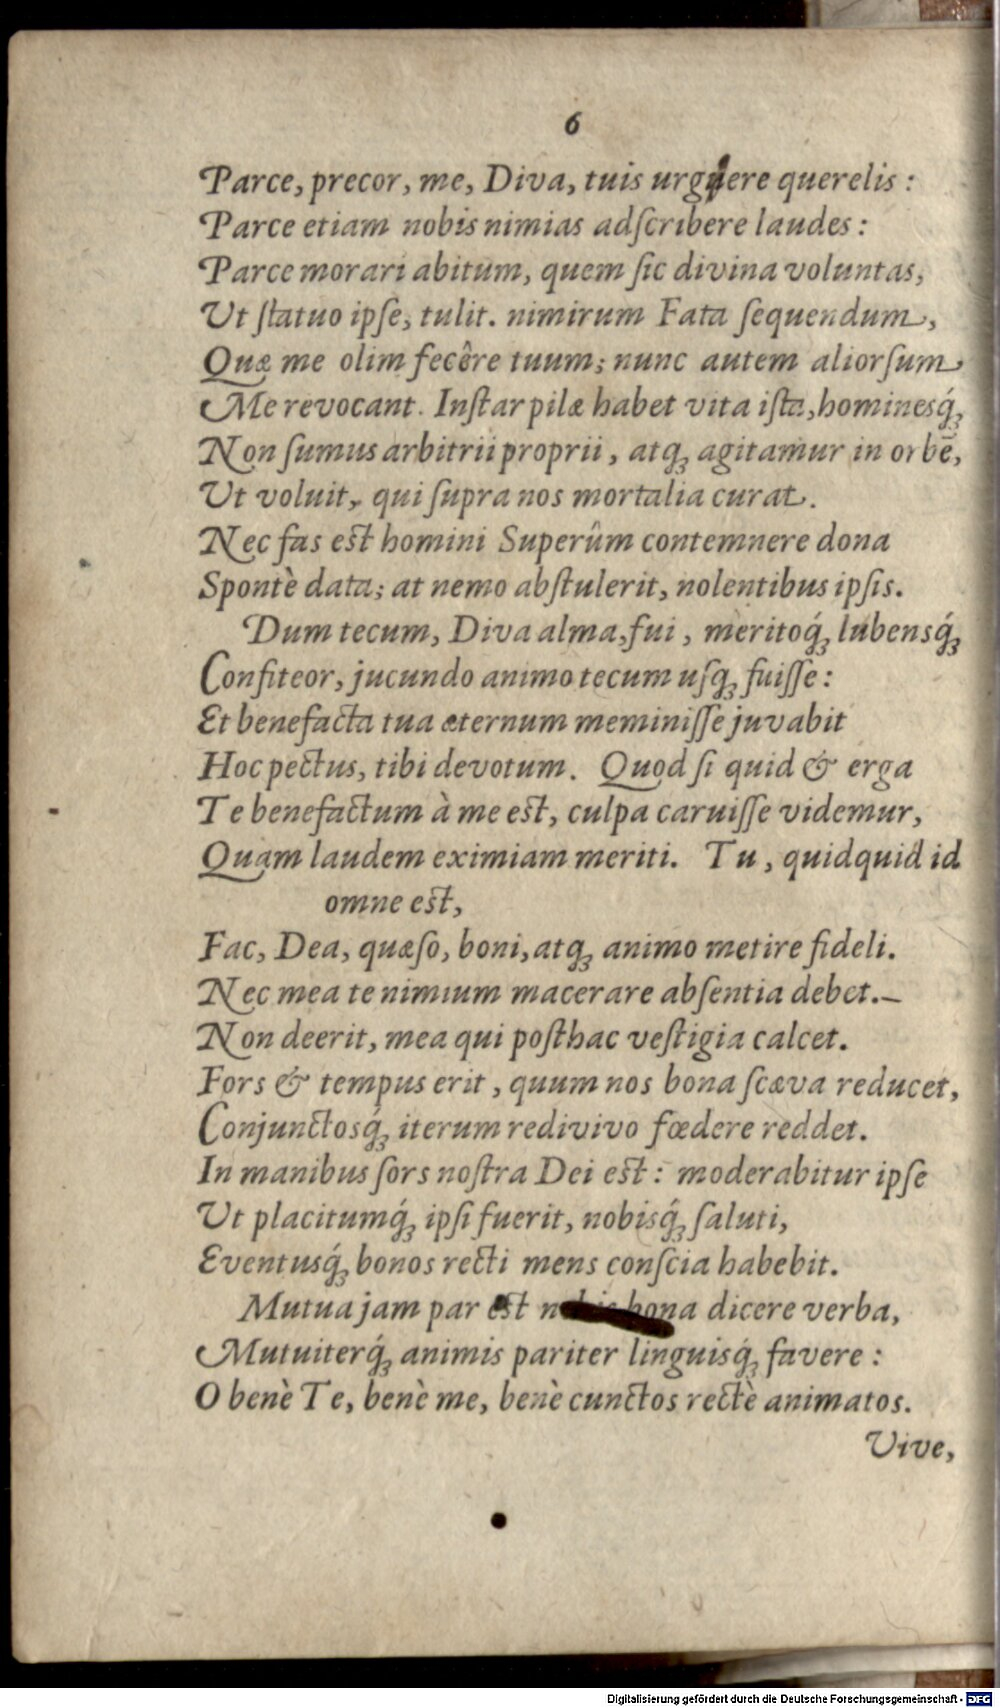 6
Parce, precor, me, Diva, tuis urguere querelis :
Parce etiam nobis nimias adſcribere laudes :
Parce morari abitum, quem ſic divina voluntas,
Ut ſtatuo ipſe, tulit. nimirum Fata ſequendum,
Quæ me olim fecêre tuum; nunc autem aliorſum
Me revocant. Inſtar pilæ habet vita iſta, hominesq́;
Non ſumus arbitrii proprii, atq; agitamur in orbē,
Ut voluit, qui ſupra nos mortalia curat.
Nec fas eſt homini Superûm contemnere dona
Spontè data; at nemo abſtulerit, nolentibus ipſis.
Dum tecum, Diva alma, fui, meritoq́; lubensq́;
Confiteor, jucundo animo tecum uſq; fuiſſe :
Et benefacta tua æternum meminiſſe juvabit
Hoc pectus, tibi devotum. Quod ſi quid & erga
Te benefactum à me eſt, culpa caruiſſe videmur,
Quam laudem eximiam meriti. Tu, quidquid id
omne eſt,
Fac, Dea, quæſo, boni, atq; animo metire fideli.
Nec mea te nimium macerare abſentia debet.
Non deerit, mea qui poſthac veſtigia calcet.
Fors & tempus erit, quum nos bona ſcæva reducet,
Conjunctosq́; iterum redivivo fœdere reddet.
In manibus ſors noſtra Dei eſt : moderabitur ipſe
Ut placitumq́; ipſi fuerit, nobisq́; ſaluti,
Eventusq́; bonos recti mens conſcia habebit.
Mutua jam par eſt nobis bona dicere verba,
Mutuiterq́; animis pariter linguisq́; favere :
O benè Te, benè me, benè cunctos rectè animatos.
Vive,
Digitalisierung gefördert durch die Deutsche Forschungsgemeinschaft - DFG